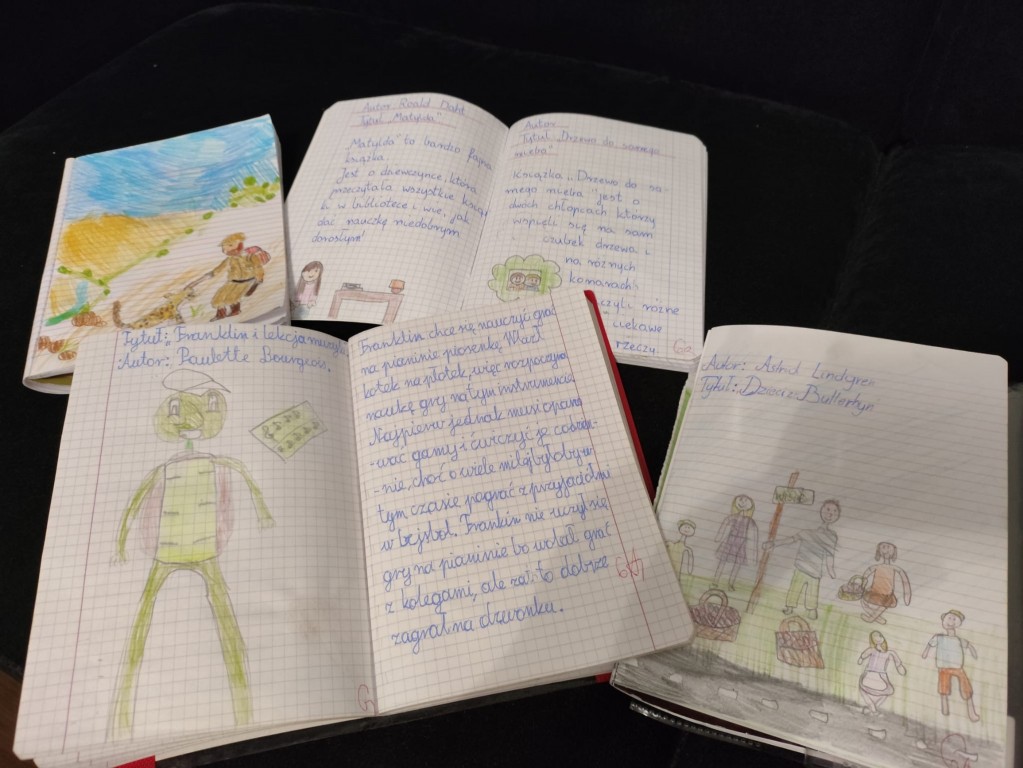 Autor Roald Dahl
Tytuł „Matylda"
„Matylda" to bardzo fajna
książka.
Jest o dziewczynce, która
przeczytała wszystkie książ
ki w bibliotece i wie, jak
dać nauczkę niedobrym
dorosłym!
Autor:
Tytuł „Drzewo do samego
nieba"
Książka „Drzewo do sa-
mego nieba" jest o
dwóch chłopcach którzy
wspieli się na sam
czubek drzewa i
na różnych
konarach
czyli różne
ciekawe
rzeczy.
Tytuł: Franklin i lekcja muzyki
Autor: Paulette Bourgois.
Franklin chce się nauczyć grać
na pianinie piosenkę Wlazł
kotek na płotek, więc rozpoczyna
naukę gry na tym instrumencie
Najpierw jednak musi opano
-wać gamy i ćwiczyć je codzien-
-nie, choć o wiele milej byłoby w
tym czasie pograć z przyjaciółmi
w bejsbol. Frankin nie uczył się
gry na pianinie bo wolał grać
z kolegami, ale za to dobrze
zagrał na dzwonku.
Autor: Astrid Lindgren
Tytuł: Dzieci z Bullerbyn